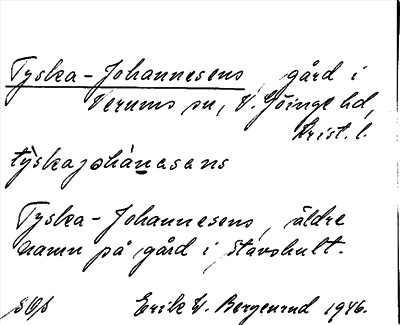 Tyska-Johannesens, gård i
Verums sn, V. Göinge hd,
Krist. l.
tỳskajohánɛsɛns
Tyska-Johannesens, äldre
namn på gård i Stavshult.
Erik W. Bergenrud 1946.